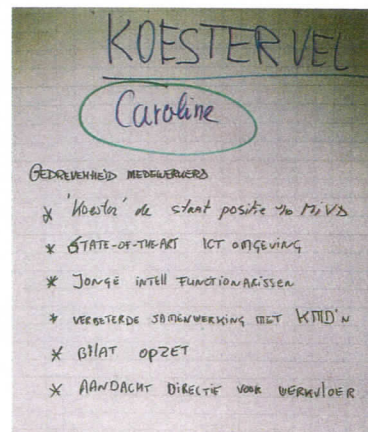 KOESTERVEL
Caroline
GEDREVENHEID MEDEWERKERS
* 'Koester' de staat positie MIVD
* STATE-OF-THE-ART ICT OMGEVING
* JONGE INTELL FUNCTIONARISSEN
* VERBETERDE SAMENWERKING MET KMD'N
* BILAT OPZET
* AANDACHT DIRECTIE VOOR WERKVLOER